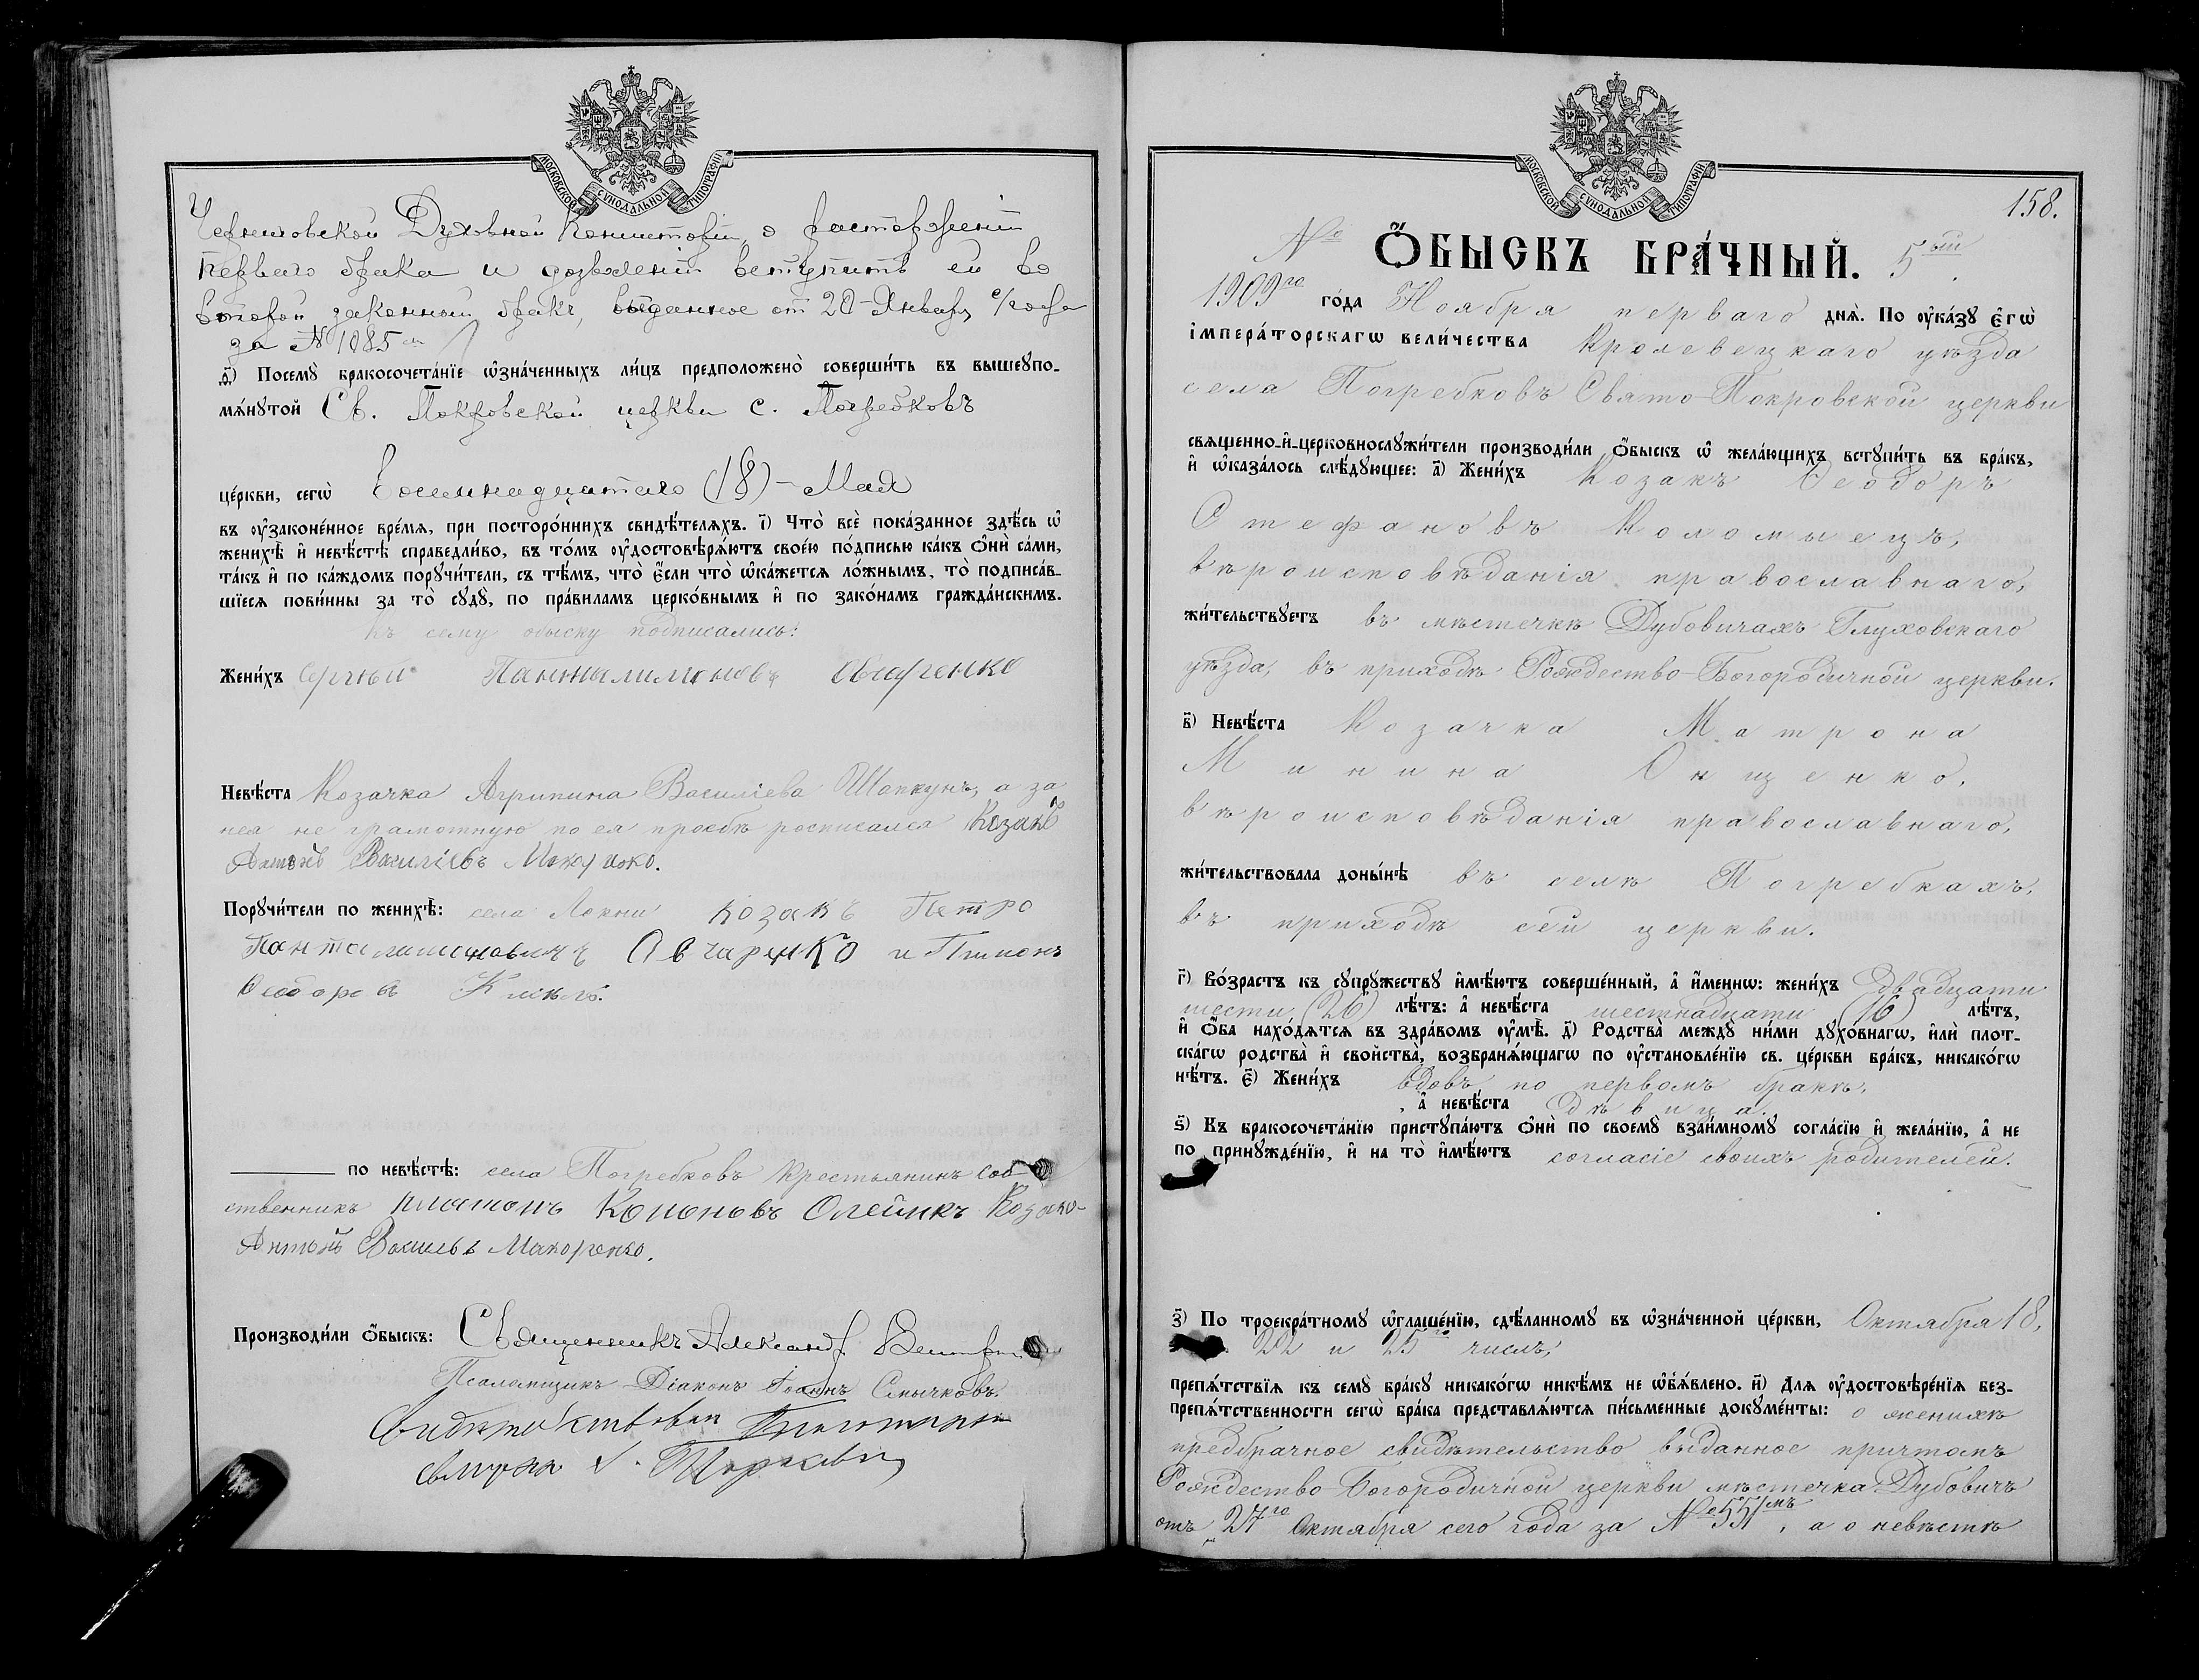 МОСКОВСКОЙ СѴНОДАЛЬНОЙ ТИПОГРАФІИ
Черниговской Духовной Консисторіи о расторженіи
перваго брака и дозволеніи вступить ей во
второй законный бракъ, выданное от 20 Января с/года
за № 1085
д҃) Посемꙋ̀ бракосочета́нїе ѡ҆зна́ченныхъ ли́цъ предположено̀ соверши́ть въ вышеꙋпо-
мѧ́нꙋтой Св. Покровской церкви с. Погребковъ
це́ркви, сегѡ̀ Восемнадцатаго (18) - Мая
въ ᲂу҆законе́нное вре́мѧ, при посторо́ннихъ свидѣ́телѧхъ. і҃) Что̀ всѐ пока́занное здѣ́сь ѡ҆
женихѣ̀ и҆ невѣ́стѣ справедли́во, въ то́мъ ᲂу҆достовѣрѧ́ютъ свое́ю по́дписью ка́къ ѻ҆нѝ са́ми,
та́къ и҆ по ка́ждомъ порꙋчи́тели, съ тѣ́мъ, что̀ є҆́сли что̀ ѡ҆ка́жетсѧ ло́жнымъ, то̀ подписа́в-
шїесѧ пови́нны за то̀ сꙋдꙋ̀, по пра́виламъ церко́внымъ и҆ по зако́намъ гражда́нскимъ.
Къ сему обыску подписались:
Жени́хъ Сергѣй Пантилимоновъ Овчаренко
Невѣ́ста Козачка Агрипина Василіева Шапкунъ, а за
нея не грамотную по ея просьбѣ росписался Козакъ
Антонъ Василіевъ
Порꙋчи́тели по женихѣ̀: села Локни Козакъ Петро
Пантилимоновичъ Овчаренко и Пимонъ
по невѣ́стѣ: села Погребковъ крестьянинъ соб-
ственникъ Платонъ Кононовъ Олейикъ Козакъ
Антонъ Васильв Макоренко.
Производи́ли ѻ҆́быскъ: Священникъ Александр
Псаломщикъ Діаконъ Іоаннъ Смычковъ.
Свидѣтельствовал Благочинный
священ.
МОСКОВСКОЙ СѴНОДАЛЬНОЙ ТИПОГРАФІИ
158.
№ Ѻ҆́БЫСКЪ БРА́ЧНЫЙ. 5ый.
1909го го́да Ноября перваго днѧ̀. По ᲂу҆ка́зꙋ є҆гѡ̀
і҆мпера́торскагѡ вели́чества Кролевецкаго уѣзда
села Погребковъ Свято-Покровской церкви
свѧщенно-и҆-церковнослꙋжи́тели производи́ли ѻ҆́быскъ ѡ҆ жела́ющихъ встꙋпи́ть въ бра́къ,
и҆ ѡ҆каза́лось слѣ́дꙋющее: а҃) Жени́хъ Козакъ Ѳеодоръ
Стефановъ Коломыецъ,
вѣроисповѣданія православнаго,
жи́тельствꙋетъ въ мѣстечкѣ Дубовичахъ Глуховскаго
уѣзда, въ приходѣ Рождество-Богородичной церкви.
в҃) Невѣ́ста Козачка Матрона
Минина Онищенко,
вѣроисповѣданія православнаго,
жи́тельствовала доны́нѣ въ селѣ Погребкахъ,
въ приходѣ сей церкви.
г҃) Во́зрастъ къ сꙋпрꙋ́жествꙋ и҆мѣ́ютъ соверше́нный, а҆ и҆́меннѡ: жени́хъ двадцати
шести (26) лѣ́тъ: а҆ невѣ́ста шестнадцати (16) лѣ́тъ,
и҆ ѻ҆́ба нахо́дѧтсѧ въ здра́вомъ ᲂу҆мѣ̀. д҃) Родства̀ междꙋ ни́ми дꙋхо́внагѡ, и҆лѝ плот-
ска́гѡ родства̀ и҆ свойства̀, возбранѧ́ющагѡ по ᲂу҆становле́нїю св. це́ркви бра́къ, никако́гѡ
нѣ́тъ. є҃) Жени́хъ вдовъ по первомъ бракѣ,
, а҆ невѣ́ста дѣвица.
ѕ҃) Къ бракосочета́нїю пристꙋпа́ютъ ѻ҆нѝ по своемꙋ̀ взаи́мномꙋ согла́сїю и҆ жела́нїю, а҆ не
по принꙋжде́нїю, и҆ на то̀ и҆мѣ́ютъ согласіе своихъ родителей.
з҃) По троекра́тномꙋ ѡ҆глаше́нїю, сдѣ́ланномꙋ въ ѡ҆зна́ченной це́ркви, Октября 18,
22 и 25го числъ,
препѧ́тствїѧ къ семꙋ̀ бра́кꙋ никако́гѡ никѣ́мъ не ѡ҆бꙗ́влено. и҃) Для ᲂу҆достовѣре́нїѧ без-
препѧ́тственности сегѡ̀ бра́ка представлѧ́ютсѧ пи́сьменные докꙋме́нты: о женихѣ
предбрачное свидѣтельство выданное причтомъ
Рождество-Богородичной церкви мѣстечка Дубовичъ
отъ 27го Октября сего года за № 551мъ, а о невѣстѣ